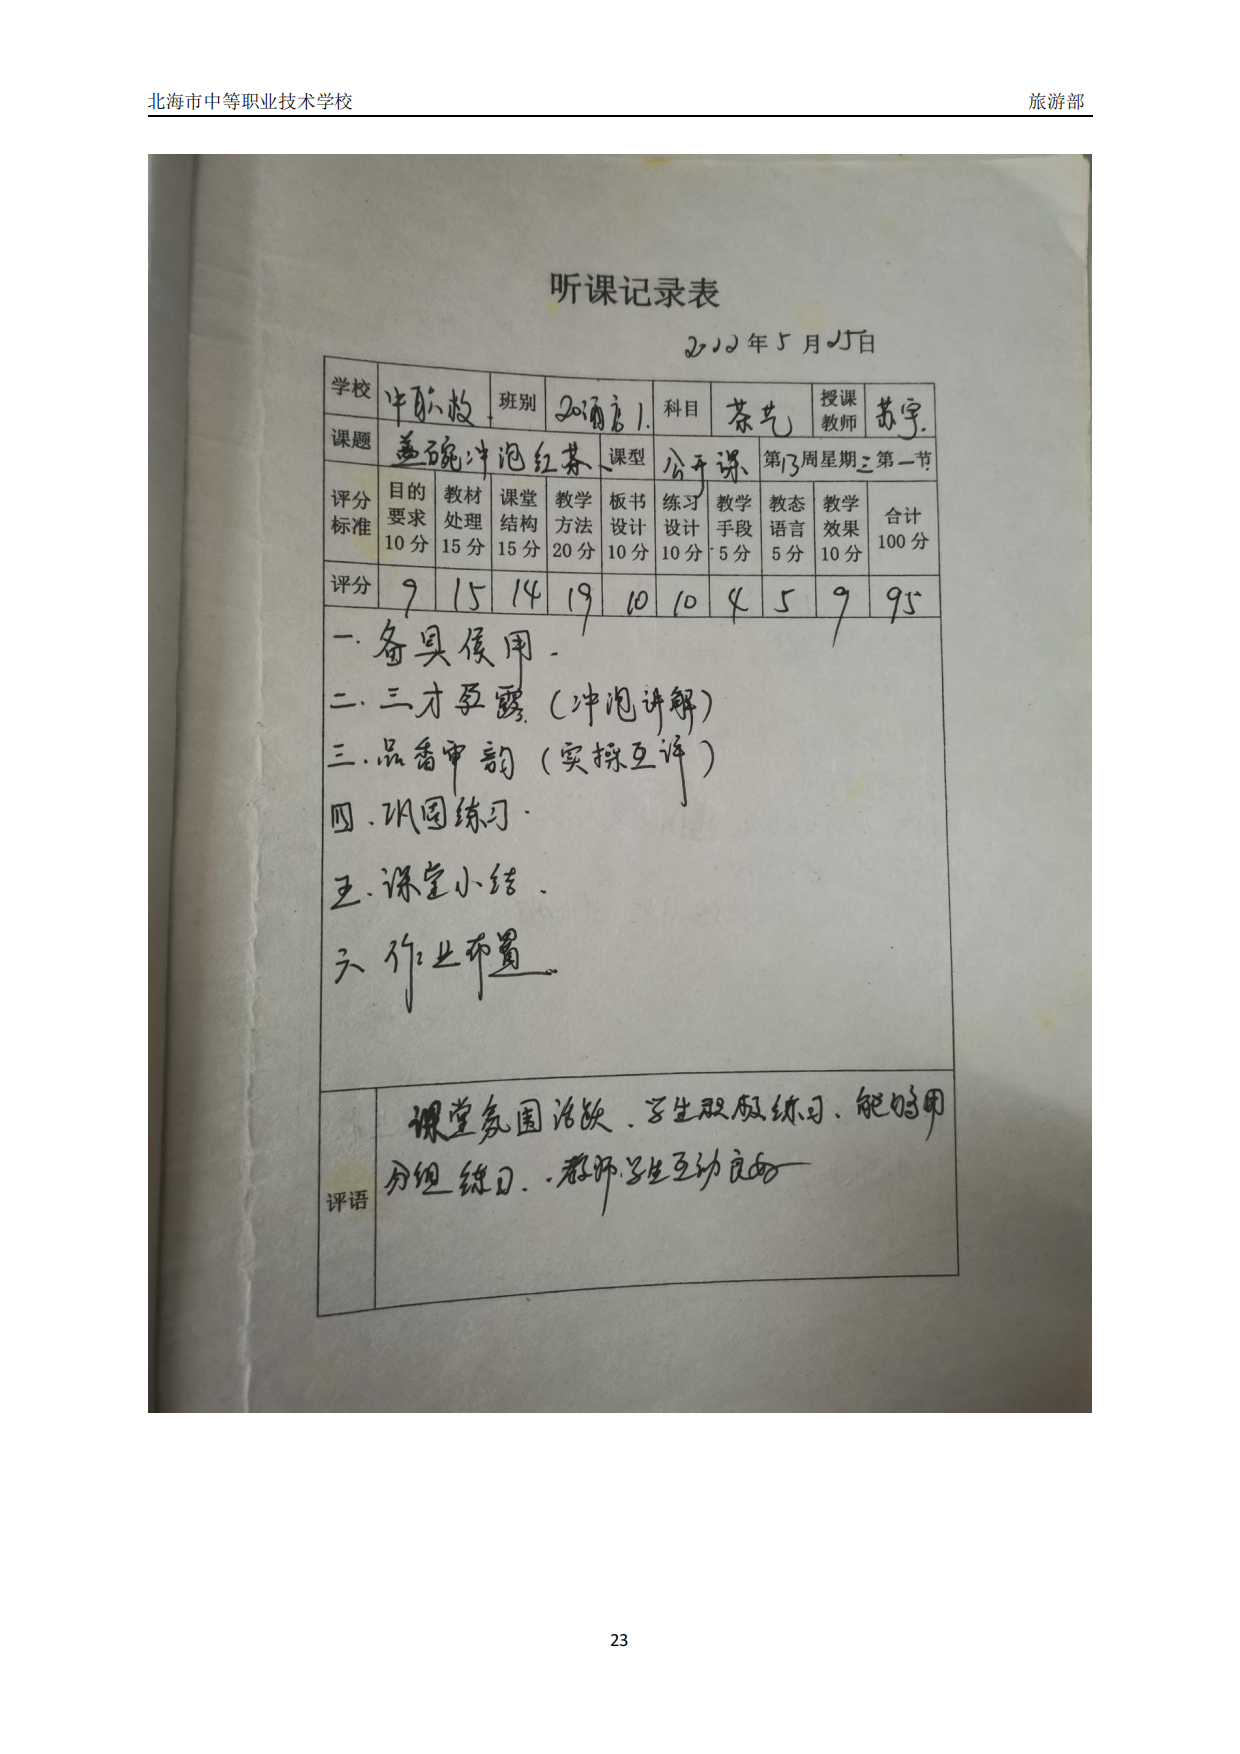 北海市中等职业技术学校 旅游部
听课记录表
2022年5月25日
学校 中职校 班别 20酒店1. 科目 茶艺 授课教师 苏宇.
课题 盖碗冲泡红茶 课型 公开课 第13周星期三第一节
评分标准 目的要求10分 教材处理15分 课堂结构15分 教学方法20分 板书设计10分 练习设计10分 教学手段5分 教态语言5分 教学效果10分 合计100分
评分 9 15 14 19 10 10 4 5 9 95
一.备具侯用.
二.三才孕露(冲泡讲解)
三.品香审韵(实操互评)
四.巩固练习.
五.课堂小结.
六 作业布置
评语
课堂氛围活跃、学生积极练习、能够用
分组练习..教师学生互动良好
23